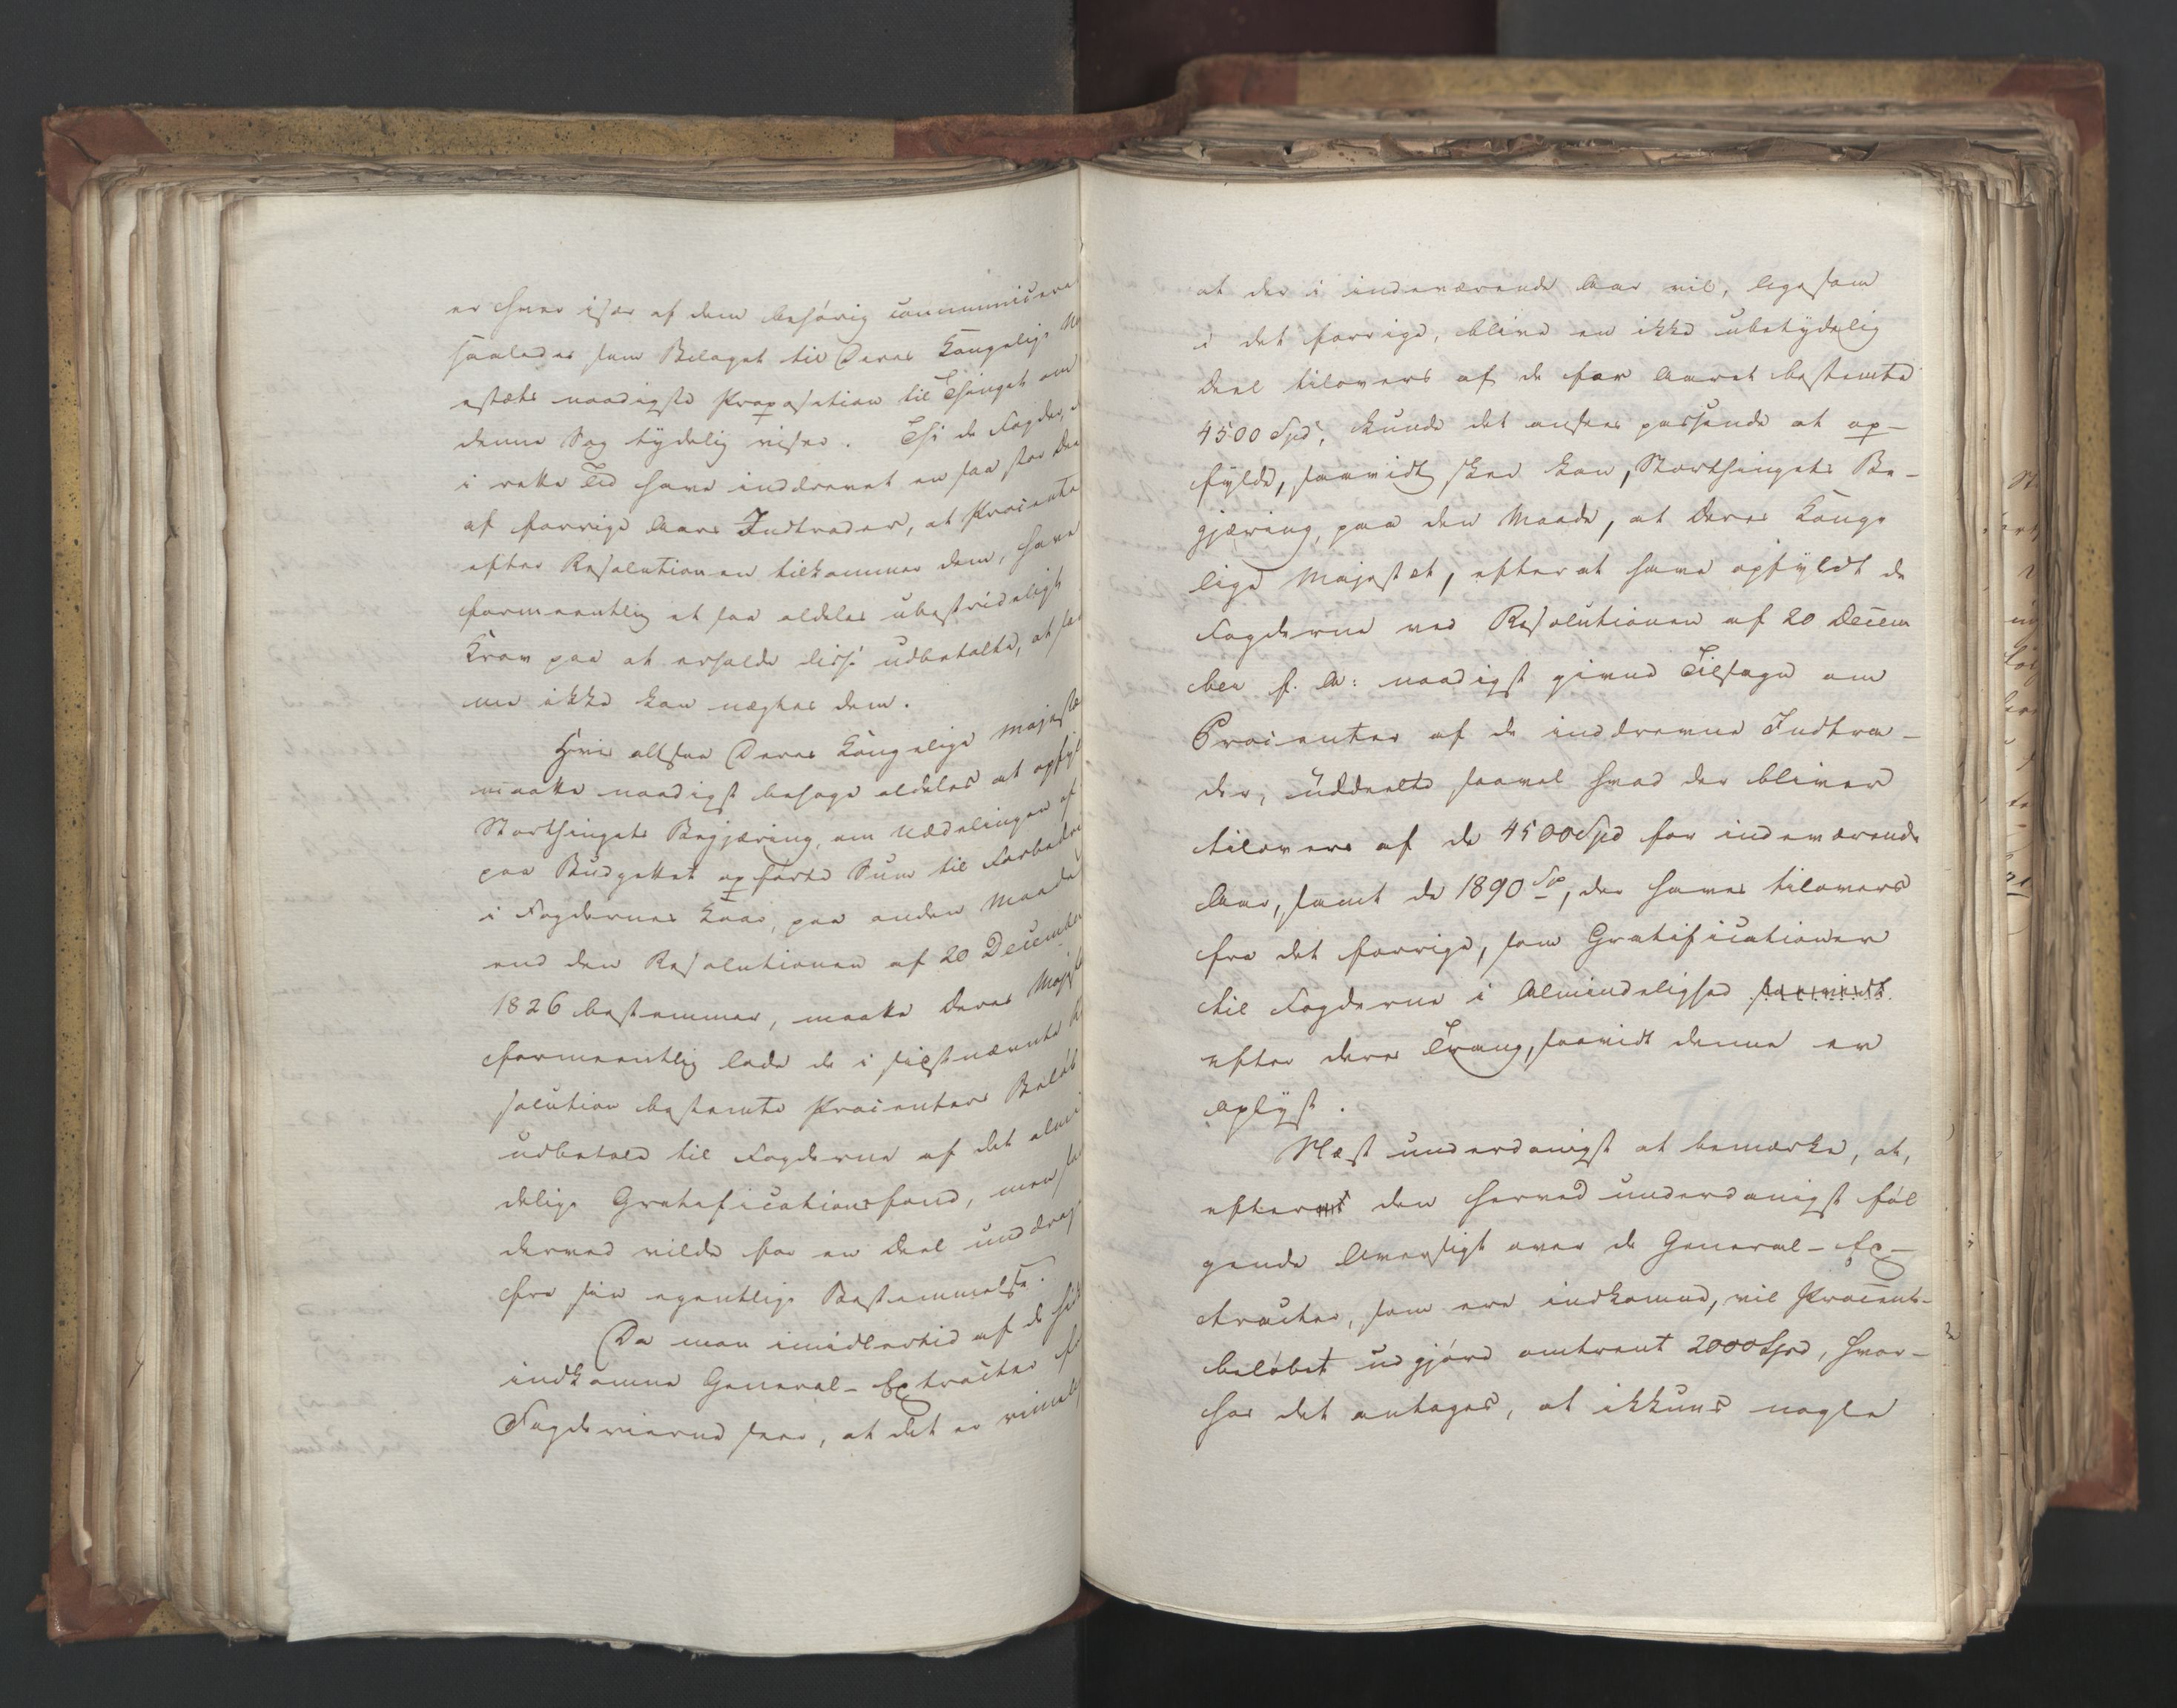 er hver især af dem behørig communicere
saaledes som Bilaget til Deres Kongelige M
estæts naadigste Proposition til Thinget om
denne Sag tydelig viser. Thi de Fogder,
i rette Tid have inddrevet en saa stor Dee
af forrige Aars Indtrader, at Procente
efter Resolutionen tilkommer dem, have
formeentlig et saa aldeles ubestrideligt
Krav paa at erholde disse udbetalte, at sa
me ikke kan nægtes dem.
Hvis altsaa Deres Kongelige Majestæ
maatte naadigst behage aldeles at opfyl
Storthingets Begjæring, om Uddelingen af
paa Budgettet opførte Sum til Forbedri
i Fogdernes Kaar, paa anden Maade
end den Resolutionen af 20 December
1826 bestemmer, maatte Deres Majestæ
formeentlig lade de i sidstnævnte R
solution bestemte Procenters Beløb
udbetale til Fogderne af det almi
delige Gratificationsfond, men sa
derved vilde for en Deel unddrage
fra sin egentlige Bestemmelse.
Da man imidlertid af de hid
indkomne General-Extracter f
Fogderierne seer, at det er rimeligt
at der i indeværende Aar vil, ligesom
i det forrige, blive en ikke ubetydelig
Deel tilovers af de for Aaret bestemte
4500 Spd, kunde det ansees passende at op-
fylde, saavidt skee kan, Storthingets Be-
gjæring, paa den Maade, at Deres Konge
lige Majestæt, efterat have opfyldt de
Fogderne ved Resolutionen af 20 Decem
ber f. A: naadigst givne Tilsagn om
Procenter af de inddrevne Indtra-
der, uddeelte saavel hvad der bliver
tilovers af de 4500 Spd for indeværende
Aar, samt de 1890 Sp, der haves tilovers
fra det forrige, som Gratificationer
til Fogderne i Almindelighed saavidt
efter deres Trang, saavidt denne er
oplyst.
Næst underdanigst at bemærke, at,
efterat den herved underdanigst føl
gende Oversigt over de General-Ex-
tracter, som ere indkomne, vil Procent-
beløbet udgjøre omtrent 2000 Spd, hvor-
hos det antages, at ikkuns nogle